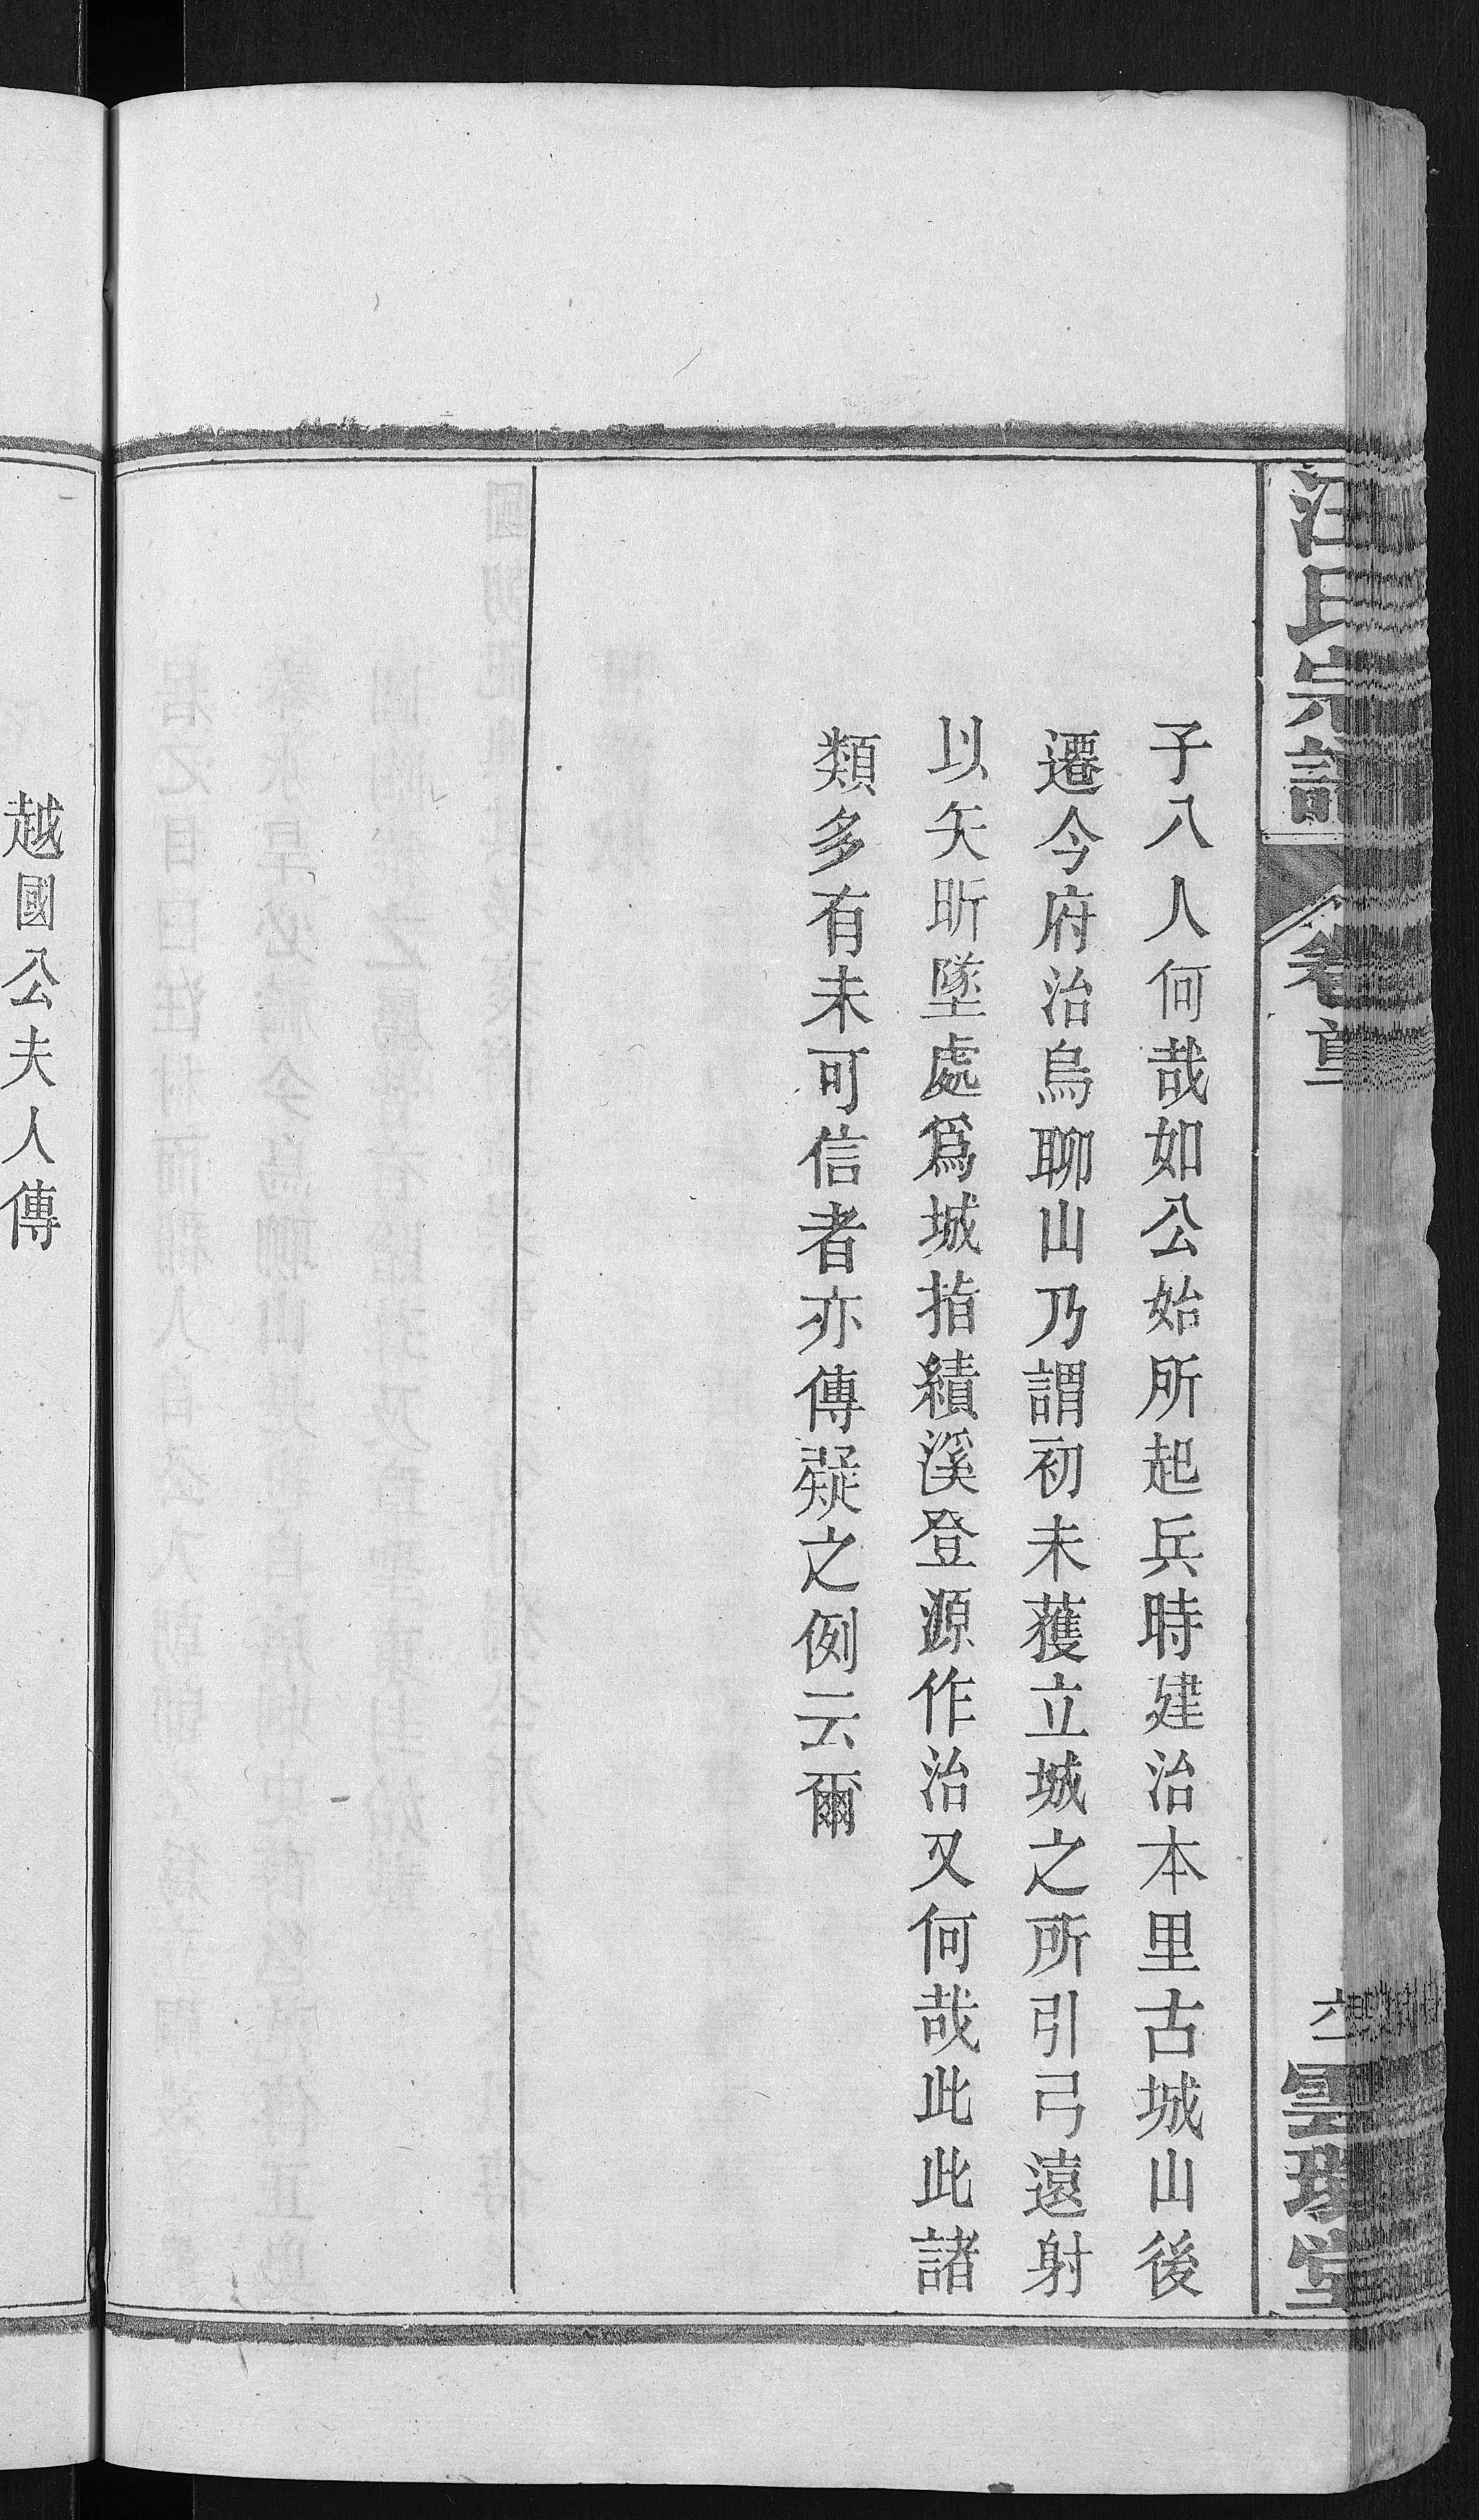 汪氏宗譜
卷首
雲璈堂
子八人何哉如公始所起兵時建治本里古城山後
遷今府治烏聊山乃謂初未獲立城之所引弓遠射
以矢昕墜處爲城指績溪登源作治又何哉此此諸
類多有未可信者亦傳凝之例云爾
越國公夫人傳